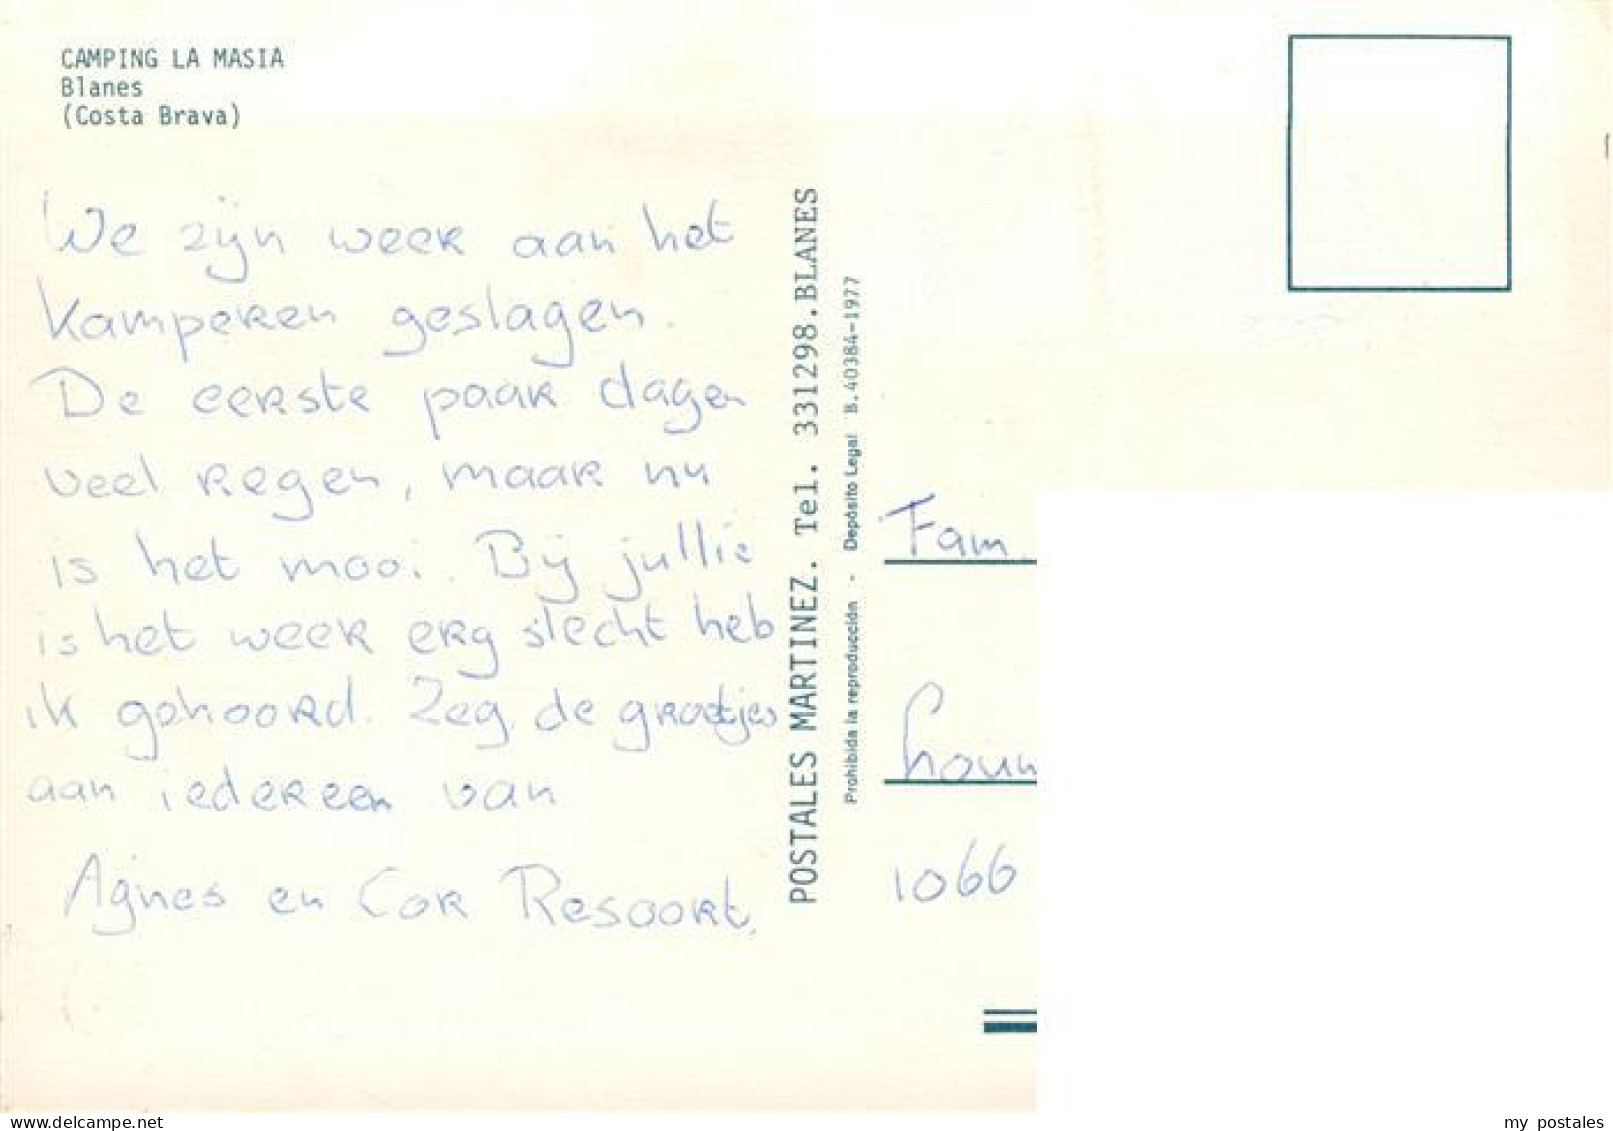 CAMPING LA MASIA
Blanes
(Costa Brava)
We zijn weer aan het
kamperen geslagen.
De eerste paar dagen
veel regen, maar nu
is het mooi. Bij jullie
is het weer erg slecht heb
ik gehoord. Zeg de groetjes
aan iedereen van
Agnes en Cor Resoort.
POSTALES MARTINEZ. Tel. 331298. BLANES
Prohibida la reproducción - Depósito Legal B. 40384-1977
Fam.
1066
delcampe.net
my_postales